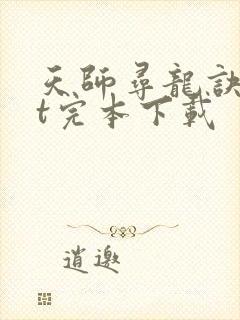 天師尋龍訣
t完本下載
逍邀